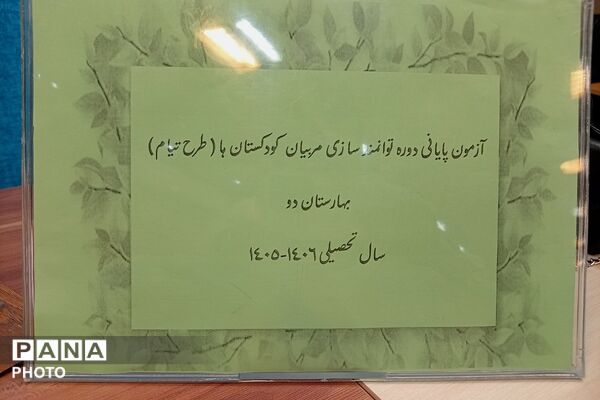 آزمون پایانی دوره توانمند سازی مربیان کودکستان ها ( طرح تیام )
بهارستان دو
سال تحصیلی ۱۴۰۶-۱۴۰۵
PANA
PHOTO